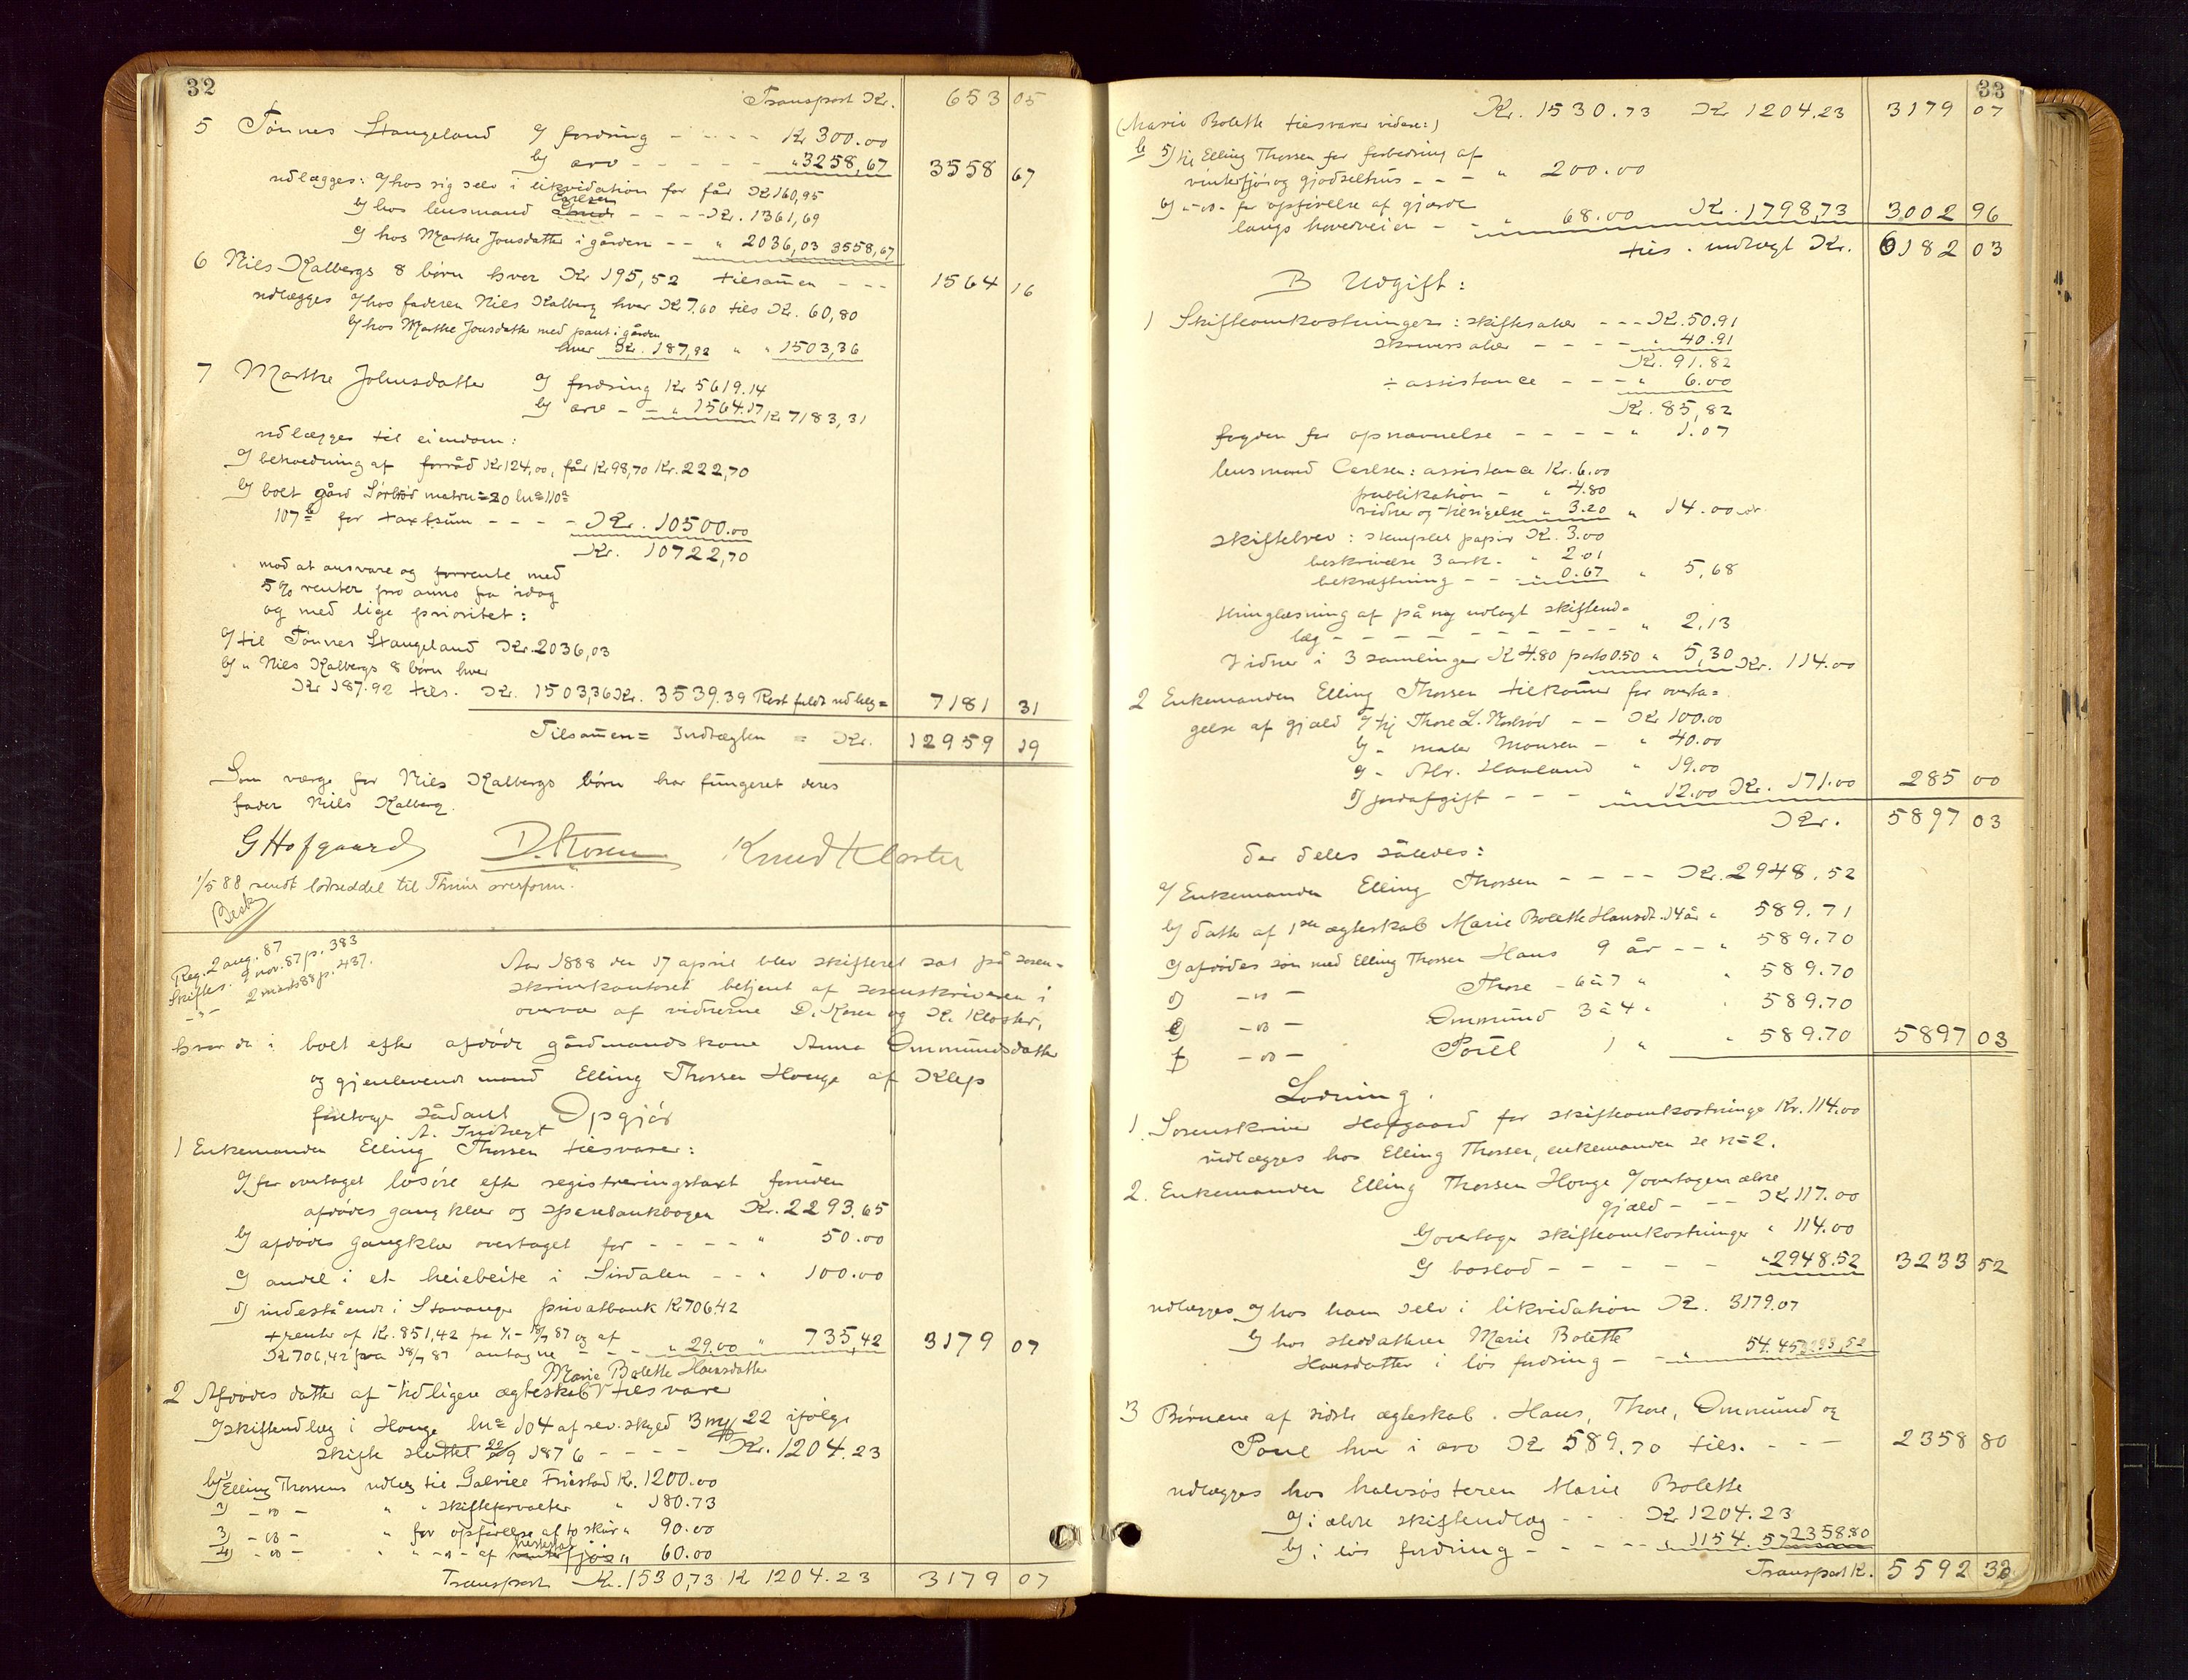 32
Transport Kr. 653 05
5 Tönnes Stangeland a/ fordring - - - - Kr 300.00
b/ arv - - - - - " 3258,67 3558 67
udlægges: a/ hos sig selv i likvidation for får Kr 160,95
Carlsen
b/ hos lensmand - - - Kr. 1361,69
c/ hos Marthe Jonsdatter i gården - - " 2036,03 3558,67
6 Niels Kalbergs 8 börn hver Kr 195,52 tilsamen - - - 1564 16
udlægges a/ hos faderen Niels Kalberg hver Kr 7.60 tils Kr. 60,80
b/ hos Marthe Jonsdatter med pant i gården
hver Kr. 187,92 " " 1503,36
7 Marthe Johnsdatter a/ fordring Kr 5619.14
b/ arv - - " 1564.17 Kr 7183,31
udlægges til eiendom:
a/ beholdning af forråd Kr 124,00, får Kr 98,70 Kr. 222,70
b/ boets gård Sörbröd matrn= 20 ln= 110a
107b for taxtsum - - - - Kr. 10500.00
Kr. 10722,70
mod at ansvare og forrente med
5% renter pro anno fra idag
og med lige prioritet:
a/ til Tönnes Stangeland Kr. 2036,03
b/ " Niels Kalbergs 8 börn hver
Kr 187.92 tils. Kr. 1503,36 Kr. 3539.39 Rest fuldt udlæg= 7181 31
Tilsamen = Indtægten = Kr. 12959 19
Som værge for Niels Kalbergs börn har fungeret deres
fader Niels Kalberg.
G Hofgaard D. Kosen Knud Kloster
1/5 88 sendt lodseddel til Thime overform.
Besk
Reg. 2 aug. 87
Skiftes. 9 nov. 87 p. 383
- " - 2 marts 88 p. 437.
Aar 1888 den 17 april blev skifteret sat på soren-
skriverkontoret betjent af sorenskriveren i
overvær af vidnerne D. Kosen og K. Kloster,
hvor da i boet efter afdöde gårdmandskone Anna Ommundsdatter
og gjenlevende mand Elling Thorsen Houge af Klep
foretoges sådant Opgjör
A. Indtægt
1 Enkemanden Elling Thorsen tilsvarer:
a/ for overtaget lösöre efter registreringstaxt foruden
afdödes gangklær og sparebankbogen Kr. 2293.65
b/ afdödes gangklær overtaget for - - - - " 50.00
c/ andel i et heiebeite i Sirdalen - - " 100.00
d/ indestående i Stavanger privatbank Kr 706.42
+ renter af Kr. 851,42 fra 1/1 - 18/7 87 og af
Kr 706,42 fra 18/7 87 antagne - - - " 29.00 " 735,42 3179 07
Marie Bolette Hansdatter
2 Afdödes datter af tidligere ægteskab tilsvarer
a/ skifteudlæg i Houge ln= 104 af rev. skyld 3 my 22 ifölge
skifte sluttet 22/9 1876 - - - - Kr. 1204.23
b/ 1) Elling Thorsens udlæg til Gabriel Friestad Kr. 1200.00
2) - " - " " skifteforvalter " 180.73
3) - " - " for opförelse af to skur " 90.00
4) - " - " - " - af fjös " 60.00
Transport Kr. 1530,73 Kr 1204.23 3179 07
33
(Marie Bolette tilsvarer videre:) Kr. 1530.73 Kr 1204.23 3179 07
b 5) til Elling Thorsen for forbedring af
vinterfjös og gjödselhus - - - " 200.00
6) - " - for opförelse af gjærde
langs hovedveien - - " 68.00 Kr. 1798,73 3002 96
tils. indtægt Kr. 6182 03
B Udgift:
1 Skifteomkostninger: skiftesaler - - - Kr. 50.91
skriversaler - - - - " 40.91
Kr. 91.82
÷ assistance - - - " 6.00
Kr. 85,82
fogden for opnævnelse - - - - - " 1.07
lensmand Carlsen: assistance Kr. 6.00
publikation - " 4.80
vidner og tilsigelse " 3.20 " 14.00
skiftebrev: stemplet papir Kr. 3.00
beskrivelse 3 ark. " 2.01
bekræftning - - " 0.67 " 5,68
thinglæsning af på ny udlagt skifteud=
læg - - - - - - - - " 2,13
Vidner i 3 samlinger Kr 4.80 porto 0.50 " 5,30 Kr. 114.00
2 Enkemanden Elling Thorsen tilkomer for overta=
gelse af gjæld a/ til Thore L. Norbröd - - Kr 100.00
b/ - maler Monsen - " 40.00
c/ - Abr. Haaland " 19.00
d/ jordafgift - - - " 12.00 Kr. 171.00 285 00
Kr. 5897 03
der deles således:
a/ Enkemanden Elling Thorsen - - - - Kr. 2948.52
b/ datter af 1ste ægteskab Marie Bolette Hansdt. 14 år " 589.71
c/ afdödes sön med Elling Thorsen Hans 9 år - - " 589.70
d) - " - Thore - 6 à 7 " " 589.70
e) - " - Ommund 3 à 4 " " 589.70
f - " - Poul 1 " " 589.70 5897 03
Lodning.
1. Sorenskriver Hofgaard for skifteomkostninger Kr. 114.00
udlægges hos Elling Thorsen, enkemanden se n= 2.
2. Enkemanden Elling Thorsen Houge a/ overtagen ældre
gjæld - - - Kr 117.00
b/ overtagne skifteomkostninger " 114.00
c/ boslod - - - - - - " 2948.52 3233 52
udlægges a/ hos ham selv i likvidation Kr. 3179.07
b/ hos steddatteren Marie Bolette
Hansdatter i lös fordring - - " 54.45 3233,52
3 Börnene af sidste ægteskab. Hans, Thore, Ommund og
Poul hver i arv Kr 589.70 tils. - - - 2358 80
udlægges hos halvsösteren Marie Bolette
a/ i ældre skifteudlæg - - - Kr 1204.23
b/ i lös fordring - - - - - " 1154.57 2358.80
Transport K. 5592 32